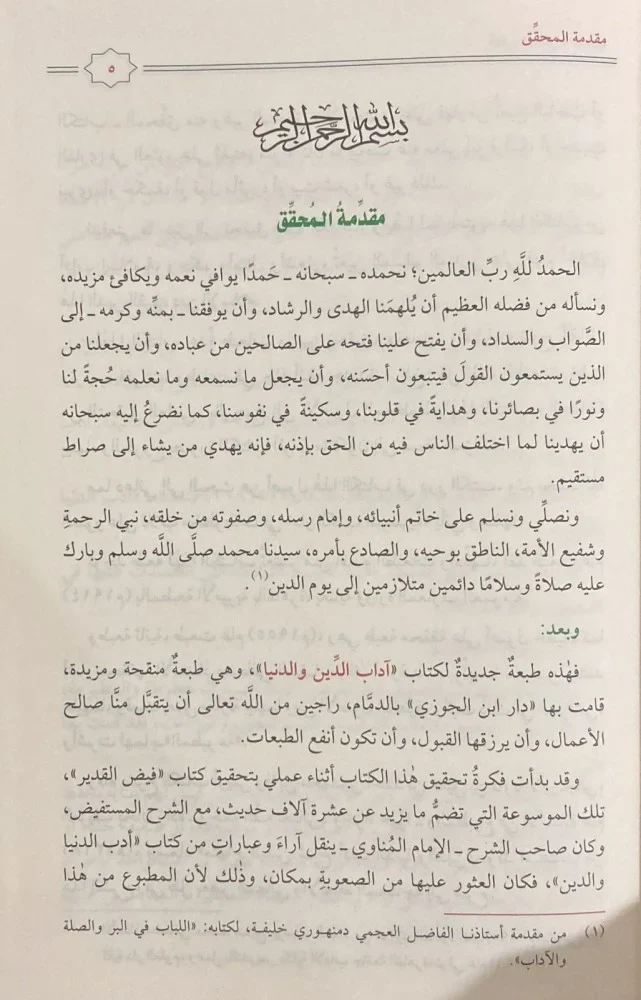 مقدمة المحقِّق
٥
بسم الله الرحمن الرحيم
مقدِّمةُ المُحقِّق
الحمدُ للَّهِ ربِّ العالمين؛ نحمده ـ سبحانه ـ حَمدًا يوافي نعمه ويكافئ مزيده،
ونسأله من فضله العظيم أن يُلهمَنا الهدى والرشاد، وأن يوفقنا ـ بمنِّه وكرمه ـ إلى
الصَّواب والسداد، وأن يفتح علينا فتحه على الصالحين من عباده، وأن يجعلنا من
الذين يستمعون القولَ فيتبعون أحسَنه، وأن يجعل ما نسمعه وما نعلمه حُجةً لنا
ونورًا في بصائرنا، وهدايةً في قلوبنا، وسكينةً في نفوسنا، كما نضرعُ إليه سبحانه
أن يهدينا لما اختلف الناس فيه من الحق بإذنه، فإنه يهدي من يشاء إلى صراط
مستقيم.
ونصلِّي ونسلم على خاتم أنبيائه، وإمام رسله، وصفوته من خلقه، نبي الرحمةِ
وشفيع الأمة، الناطق بوحيه، والصادع بأمره، سيدنا محمد صلَّى اللَّه وسلم وبارك
عليه صلاةً وسلامًا دائمين متلازمين إلى يوم الدين(١).
وبعد:
فهٰذه طبعةٌ جديدةٌ لكتاب «آداب الدِّين والدنيا»، وهي طبعةٌ منقحة ومزيدة،
قامت بها «دار ابن الجوزي» بالدمَّام، راجين من اللَّه تعالى أن يتقبَّل منَّا صالح
الأعمال، وأن يرزقها القبول، وأن تكون أنفع الطبعات.
وقد بدأت فكرةُ تحقيق هٰذا الكتاب أثناء عملي بتحقيق كتاب «فيض القدير»،
تلك الموسوعة التي تضمُّ ما يزيد عن عشرة آلاف حديث، مع الشرح المستفيض،
وكان صاحب الشرح ـ الإمام المُناوي ـ ينقل آراءً وعباراتٍ من كتاب «أدب الدنيا
والدين»، فكان العثور عليها من الصعوبةِ بمكان، وذٰلك لأن المطبوع من هٰذا
(١) من مقدمة أستاذنا الفاضل العجمي دمنهوري خليفة، لكتابه: «اللباب في البر والصلة
والآداب».